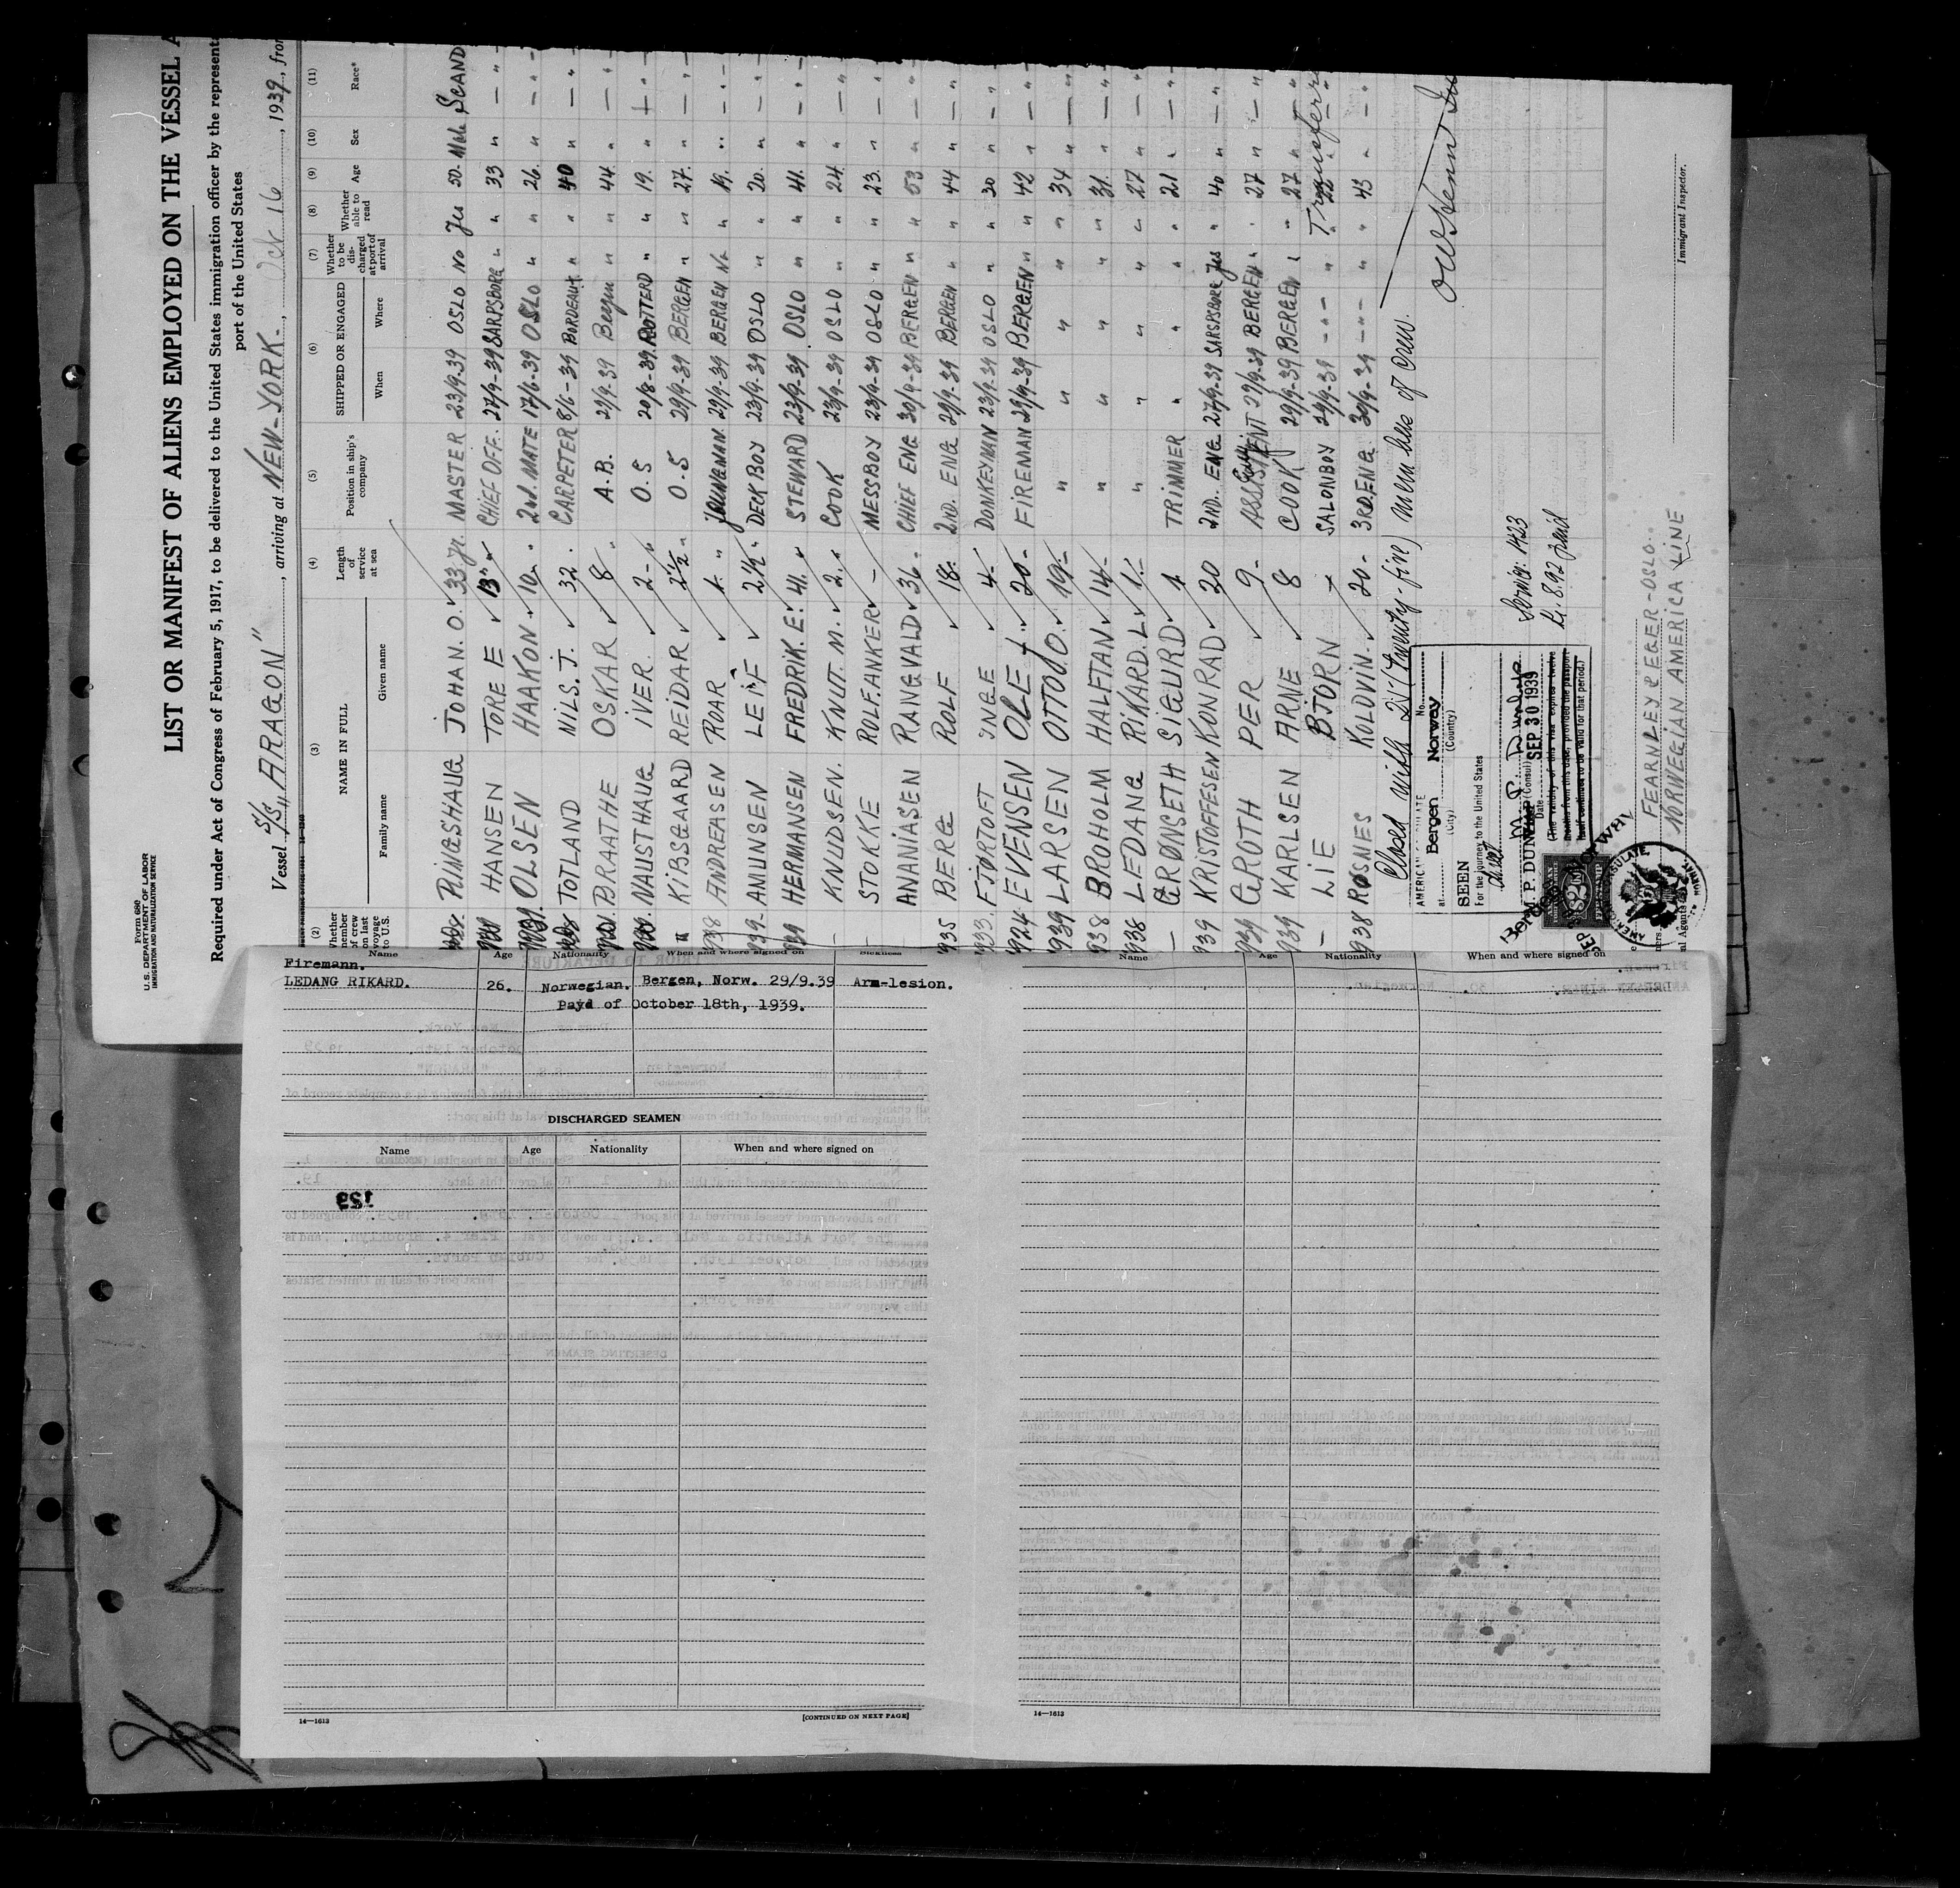 Form 680
U.S. DEPARTMENT OF LABOR
IMMIGRATION AND NATURALIZATION SERVICE
LIST OR MANIFEST OF ALIENS EMPLOYED ON THE VESSEL A
Required under Act of Congress of February 5, 1917, to be delivered to the United States immigration officer by the represent
port of the United States
Vessel S/S "ARAGON", arriving at NEW-YORK., Oct 16, 1939, fro
(2) (3) (4) (5) (6) (7) (8) (9) (10) (11)
Whether member of crew on last voyage to U.S. NAME IN FULL Family name Given name Length of service at sea Position in ship's company SHIPPED OR ENGAGED When Where Whether to be discharged at port of arrival Whether able to read Age Sex Race*
RINGSHAUG JOHAN. O. 33 yr. MASTER 23/9-39 OSLO No Yes 50. Male SCAND
HANSEN TORE E 13 " CHIEF OFF. 27/9-39 SARPSBORG " " 33 " — "
OLSEN HAAKON 10 " 2nd. MATE 17/6-39 OSLO " " 26. " — "
TOTLAND NILS. J. 32. CARPETER 8/6-39 BORDEAUX " " 40 " — "
BRAATHE OSKAR 8 " A.B. 29/9.39 Bergen " " 44. " — "
NAUSTHAUG IVER. 2 - " O.S 20/8-39. ROTTERD " " 19. " — "
KIBSGAARD REIDAR 2 1/2 " O.S 29/9-39 BERGEN " " 27. " — "
938 ANDREASEN ROAR 1. " JOUNGMAN. 29/9-39 BERGEN No " 19. " — "
939- AMUNSEN LEIF 2 1/2 " DECK BOY 23/9-39 OSLO " " 20. " — "
939 HERMANSEN FREDRIK. E. 41. STEWARD 23/9-39. OSLO " " 41. " — "
— KNUDSEN. KNUT. M. 2. " COOK 23/9-39 OSLO " " 24. " — "
— STOKKE ROLF. ANKER — MESSBOY 23/9-39 OSLO " " 23. " — "
— ANANIASEN RANGVALD 36 - CHIEF ENG 30/9-39 BERGEN " " 53 " — "
935 BERG ROLF 18. 2ND. ENG 29/9-39 BERGEN " " 44 " — "
933. FJØRTOFT INGE 4- DONKEYMAN 23/9.39 OSLO " " 30 " — "
924 EVENSEN OLE 20- FIREMAN 29/9-39 BERGEN " " 42 " — "
939 LARSEN OTTO O. 19- " " " " " 34 " — "
938 BROHOLM HALFTAN 14- " " " " " 31. " — "
938 LEDANG RIKARD. L. 1- " " " " " 27 " — "
— GRØNSETH SIGURD 1 TRIMMER " " " " 21 " — "
939 KRISTOFFESEN KONRAD 20 2ND. ENG. 27/9.39 SARSPSBORG Yes " 40 " — "
939 GROTH PER 9- ASSISTENT 29/9.39 BERGEN " " 27 " — "
939 KARLSEN ARNE 8 COOK 29/9-39 BERGEN " " 27 " — "
— LIE BJORN SALONBOY 29/9-39 -"- " " Transferr
938 ROSNES KOLDVIN. 20- 3RD.ENG. 30/9-39 -"- " " 43 " — "
Closed with 25 (twenty-five) members of crew.
AMERICAN CONSULATE No.
at Bergen Norway
(City) (Country)
SEEN
For the journey to the United States
M. P. DUNLAP (Consul)
Date SEP 30 1939
(The validity of this visa expires twelve
months from this date, provided the passport
itself continues to be valid for that period.)
Service: 1423
Kr. 8.92 paid
AMERICAN CONSULATE
FEARNLEY & EGER-OSLO..
NORWEGIAN AMERICA LINE
Immigrant Inspector.
Name Age Nationality When and where signed on Sickness
Firemann.
LEDANG RIKARD. 26. Norwegian. Bergen, Norw. 29/9.39 Arm-lesion.
Payd of October 18th, 1939.
DISCHARGED SEAMEN
Name Age Nationality When and where signed on
14—1613 [CONTINUED ON NEXT PAGE]
Name Age Nationality When and where signed on
14—1613